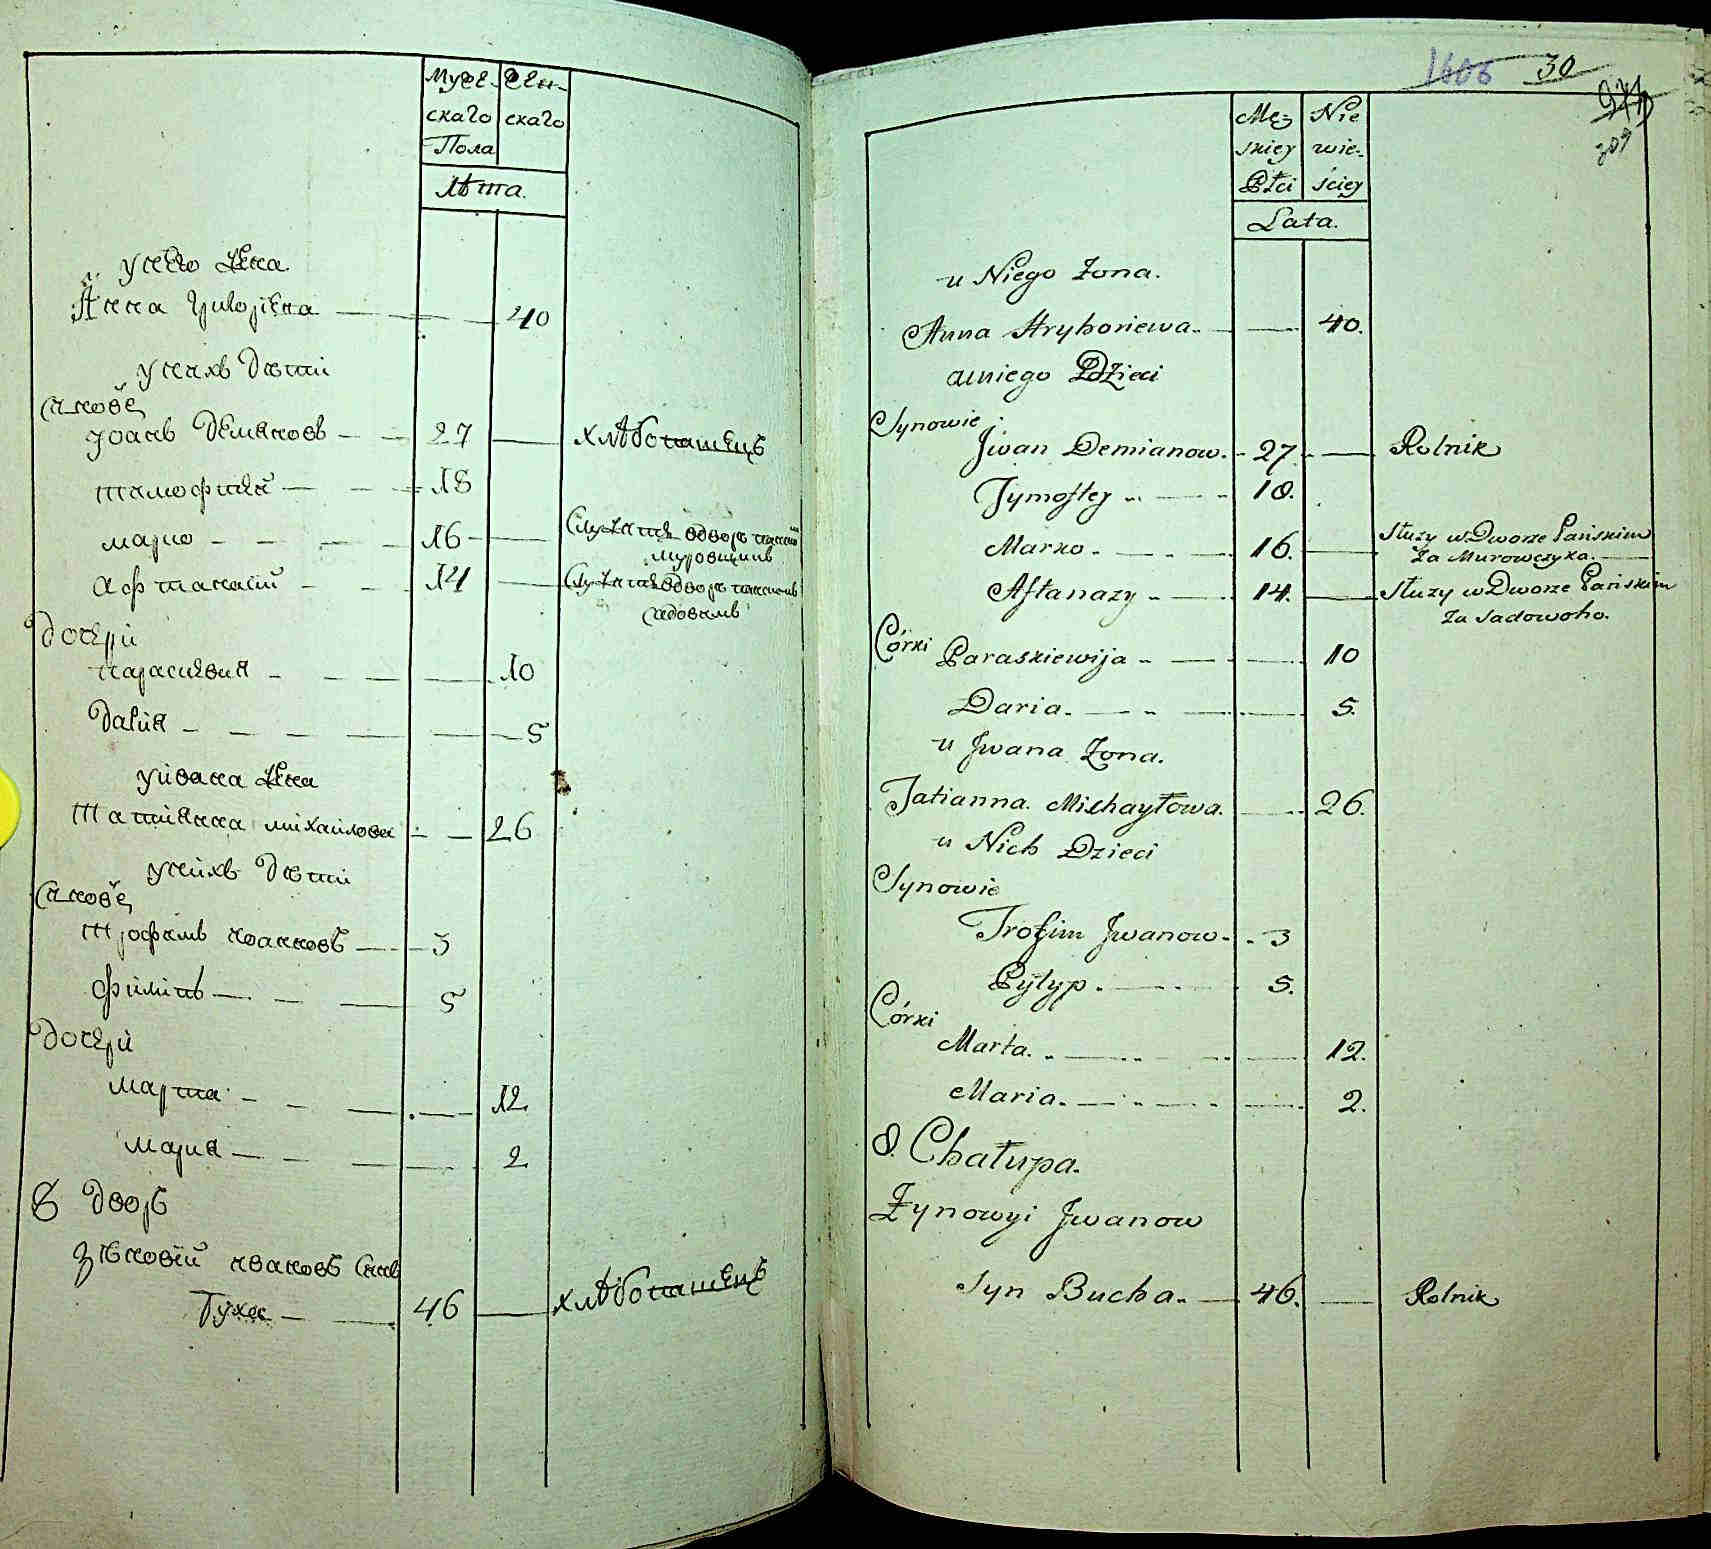 Мужe- Жен-
скаго скаго
Пола
Лѣта.
У него Жена
Анна Григорiева 40
у нихъ Дѣти
Сыновѣ
Иванъ Демяновъ 27 хлѣбопашецъ
тимофѣй 18
марко 16 Служитъ вдворѣ панском
муровщикъ
афтанасiй 14 Служитъ вдворѣ панскомъ
садовымъ
Дочерй
параскѣвия 10
Дарiя 5
У йвана Жена
татияна михайлова 26
у нйхъ Дѣти
Сыновѣ
трофимъ ивановъ 3
филипъ 5
Дочерй
марта 12
мария 2
8 Дворъ
Зѣновiй ивановъ Сынъ
Буха 46 хлѣбопашецъ
1606 30
309
Męz- Nie
skiey wie-
Płci ściey
Lata.
u Niego Żona.
Anna Hryhoriewa. 40.
u niego Dzieci
Synowie
Jwan Demianow. 27. Rolnik
Tymoftey 18.
Marko 16. Służy w Dworze Pańskim
Za Murowczyka.
Aftanazy 14. Służy w Dworze Pańskim
Za Sadowoho.
Córki Paraskiewija 10
Daria 5.
u Jwana Żona.
Tatianna Michayłowa. 26.
u Nich Dzieci
Synowie
Trofim Jwanow 3
Pyłyp 5.
Córki
Marta 12.
Maria 2.
8. Chałupa.
Zynowyi Jwanow
Syn Bucha 46. Rolnik